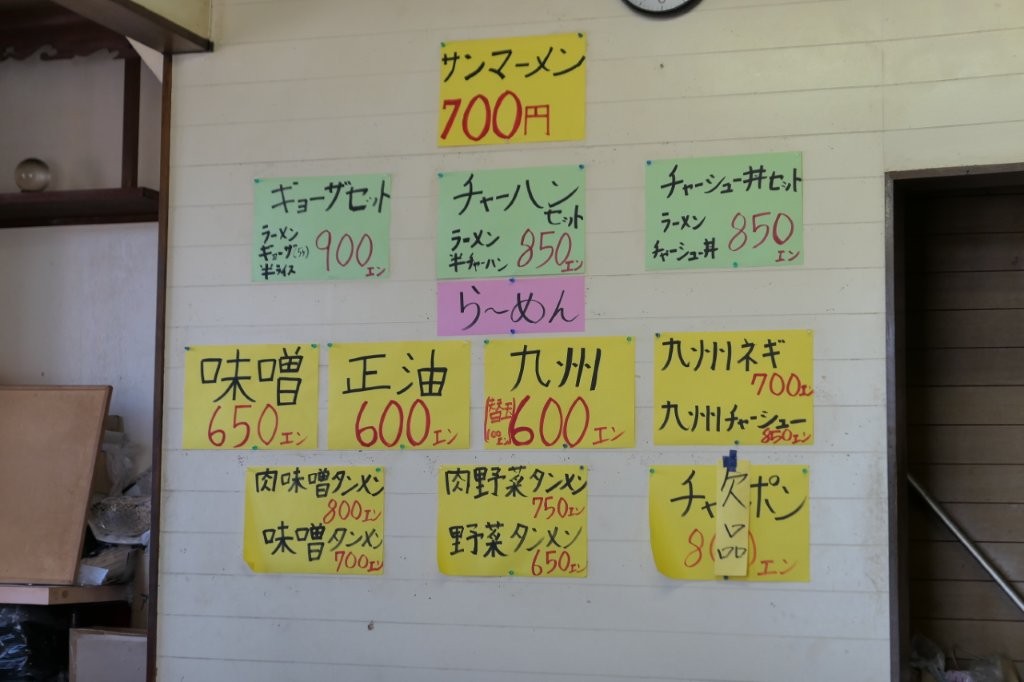 サンマーメン
700円
ギョーザセット
ラーメン
ギョーザ(5ヶ)
半ライス
900エン
チャーハン
セット
ラーメン
半チャーハン
850エン
チャーシュー丼セット
ラーメン
チャーシュー丼
850エン
ら〜めん
味噌
650エン
正油
600エン
九州
替玉
100エン
600エン
九州ネギ
700エン
九州チャーシュー
850エン
肉味噌タンメン
800エン
味噌タンメン
700エン
肉野菜タンメン
750エン
野菜タンメン
650エン
チャ ポン
欠品
8 エン